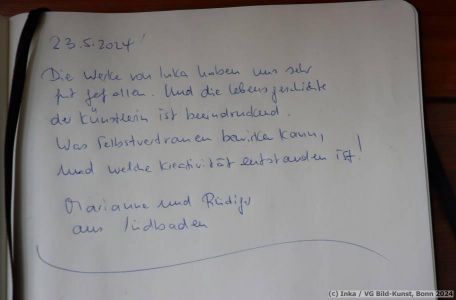 23.5.2024
Die Werke von Inka haben uns sehr
gut gefallen. Und die Lebensgeschichte
der Künstlerin ist beeindruckend.
Was Selbstvertrauen bewirken kann,
und welche Kreativität entstanden ist!
Marianne und Rüdiger
aus Südbaden
(c) Inka / VG Bild-Kunst, Bonn 2024